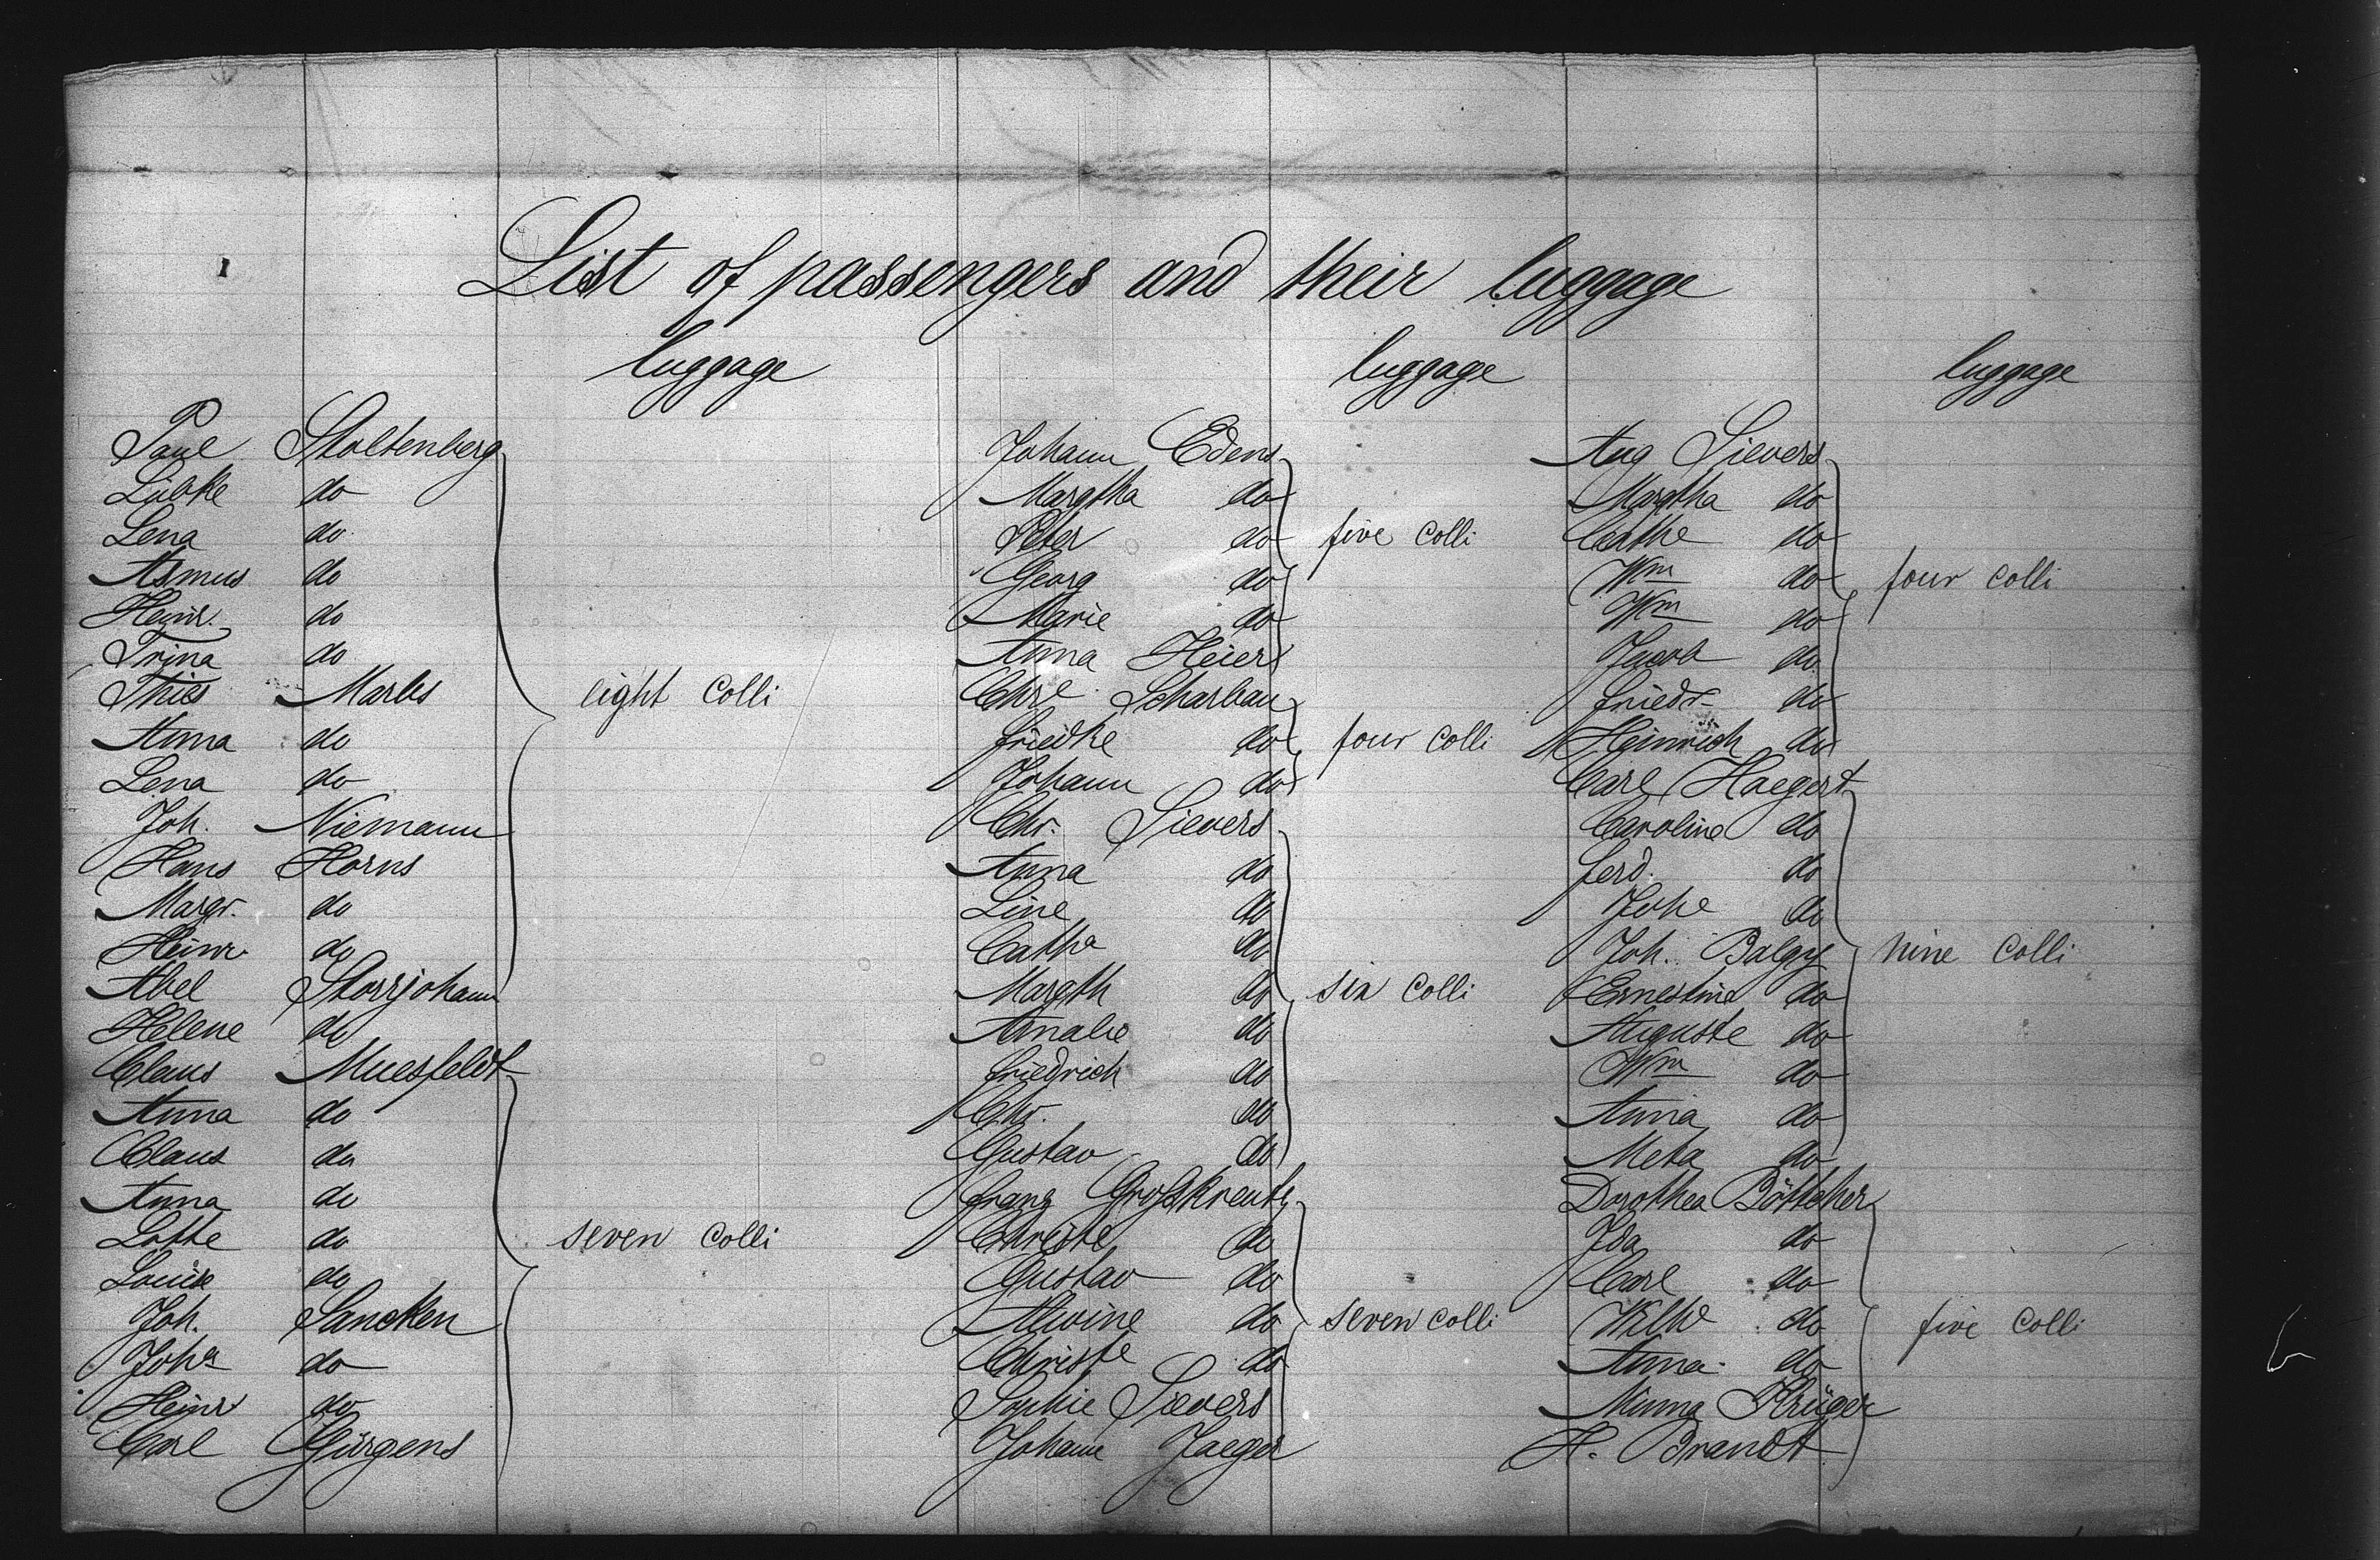 List of passengers and their luggage
luggage
Paul Stoltenberg
Lübke do
Lena do
Asmus do
Heinr. do
Trina do
Thies Marles
eight Colli
Anna do
Lena do
Joh. Niemann
Hans Horns
Margr. do
Heinr. do
Abel Storrjohann
Helene do
Claus Muesfeldt
Anna do
Claus do
Anna do
Lotte do
seven Colli
Louise do
Joh. Sancken
Joha do
Heinr do
Carl Gürgens
luggage
Johann Edens
Margtha do
Peter do
five Colli
Georg do
Marie do
Anna Heiers
Chre Scharbau
Friedke do
four Colli
Johann do
Chr. Sievers
Anna do
Line do
Catha do
Margth do
six Colli
Amalie do
Friedrich do
Chr. do
Gustav do
Franz Großkreutz
Christe do
Gustav do
Alwine do
seven Colli
Christe do
Sophie Sievers
Johann Jaeger
luggage
Aug Sievers
Margtha do
Cathe do
Wm do
four Colli
Wm do
Jacob do
Friedr do
Heinrich do
Carl Haegert
Caroline do
Ferd. do
Johe do
Joh. Balgy
nine Colli
Ernestine do
Auguste do
Wm do
Anna do
Meta do
Dorothea Böttcher
Ida do
Carl do
Wilhe do
five Colli
Anna do
Minna Krüger
H. Brandt